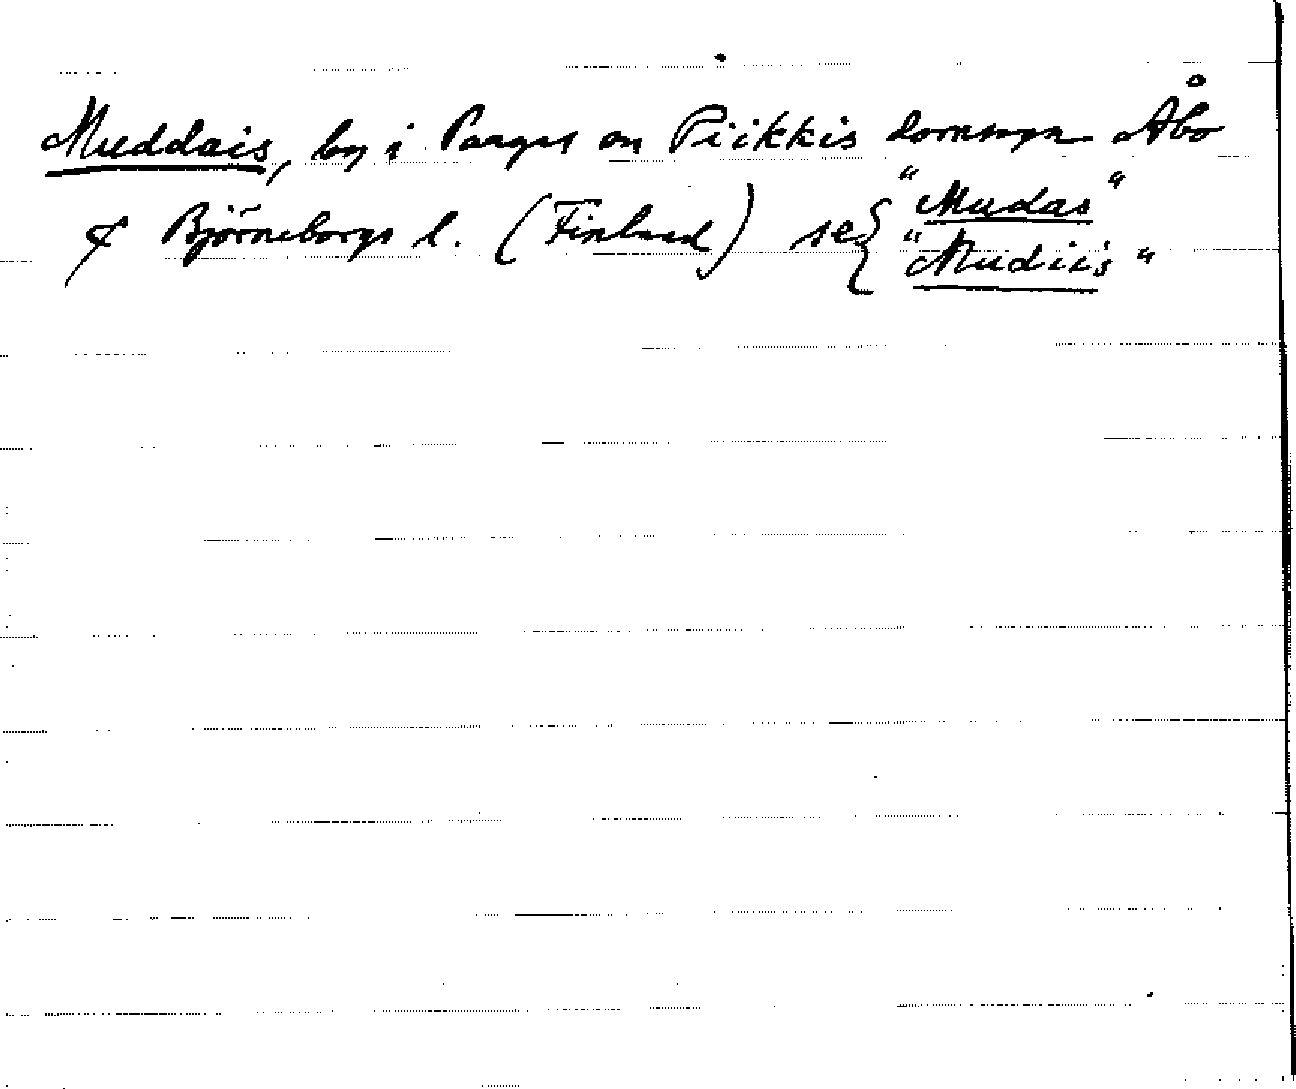 Muddais, by i Pargas sn Piikkis domsaga Åbo
& Björneborgs l. (Finland) se { "Mudas"
"Mudiis"